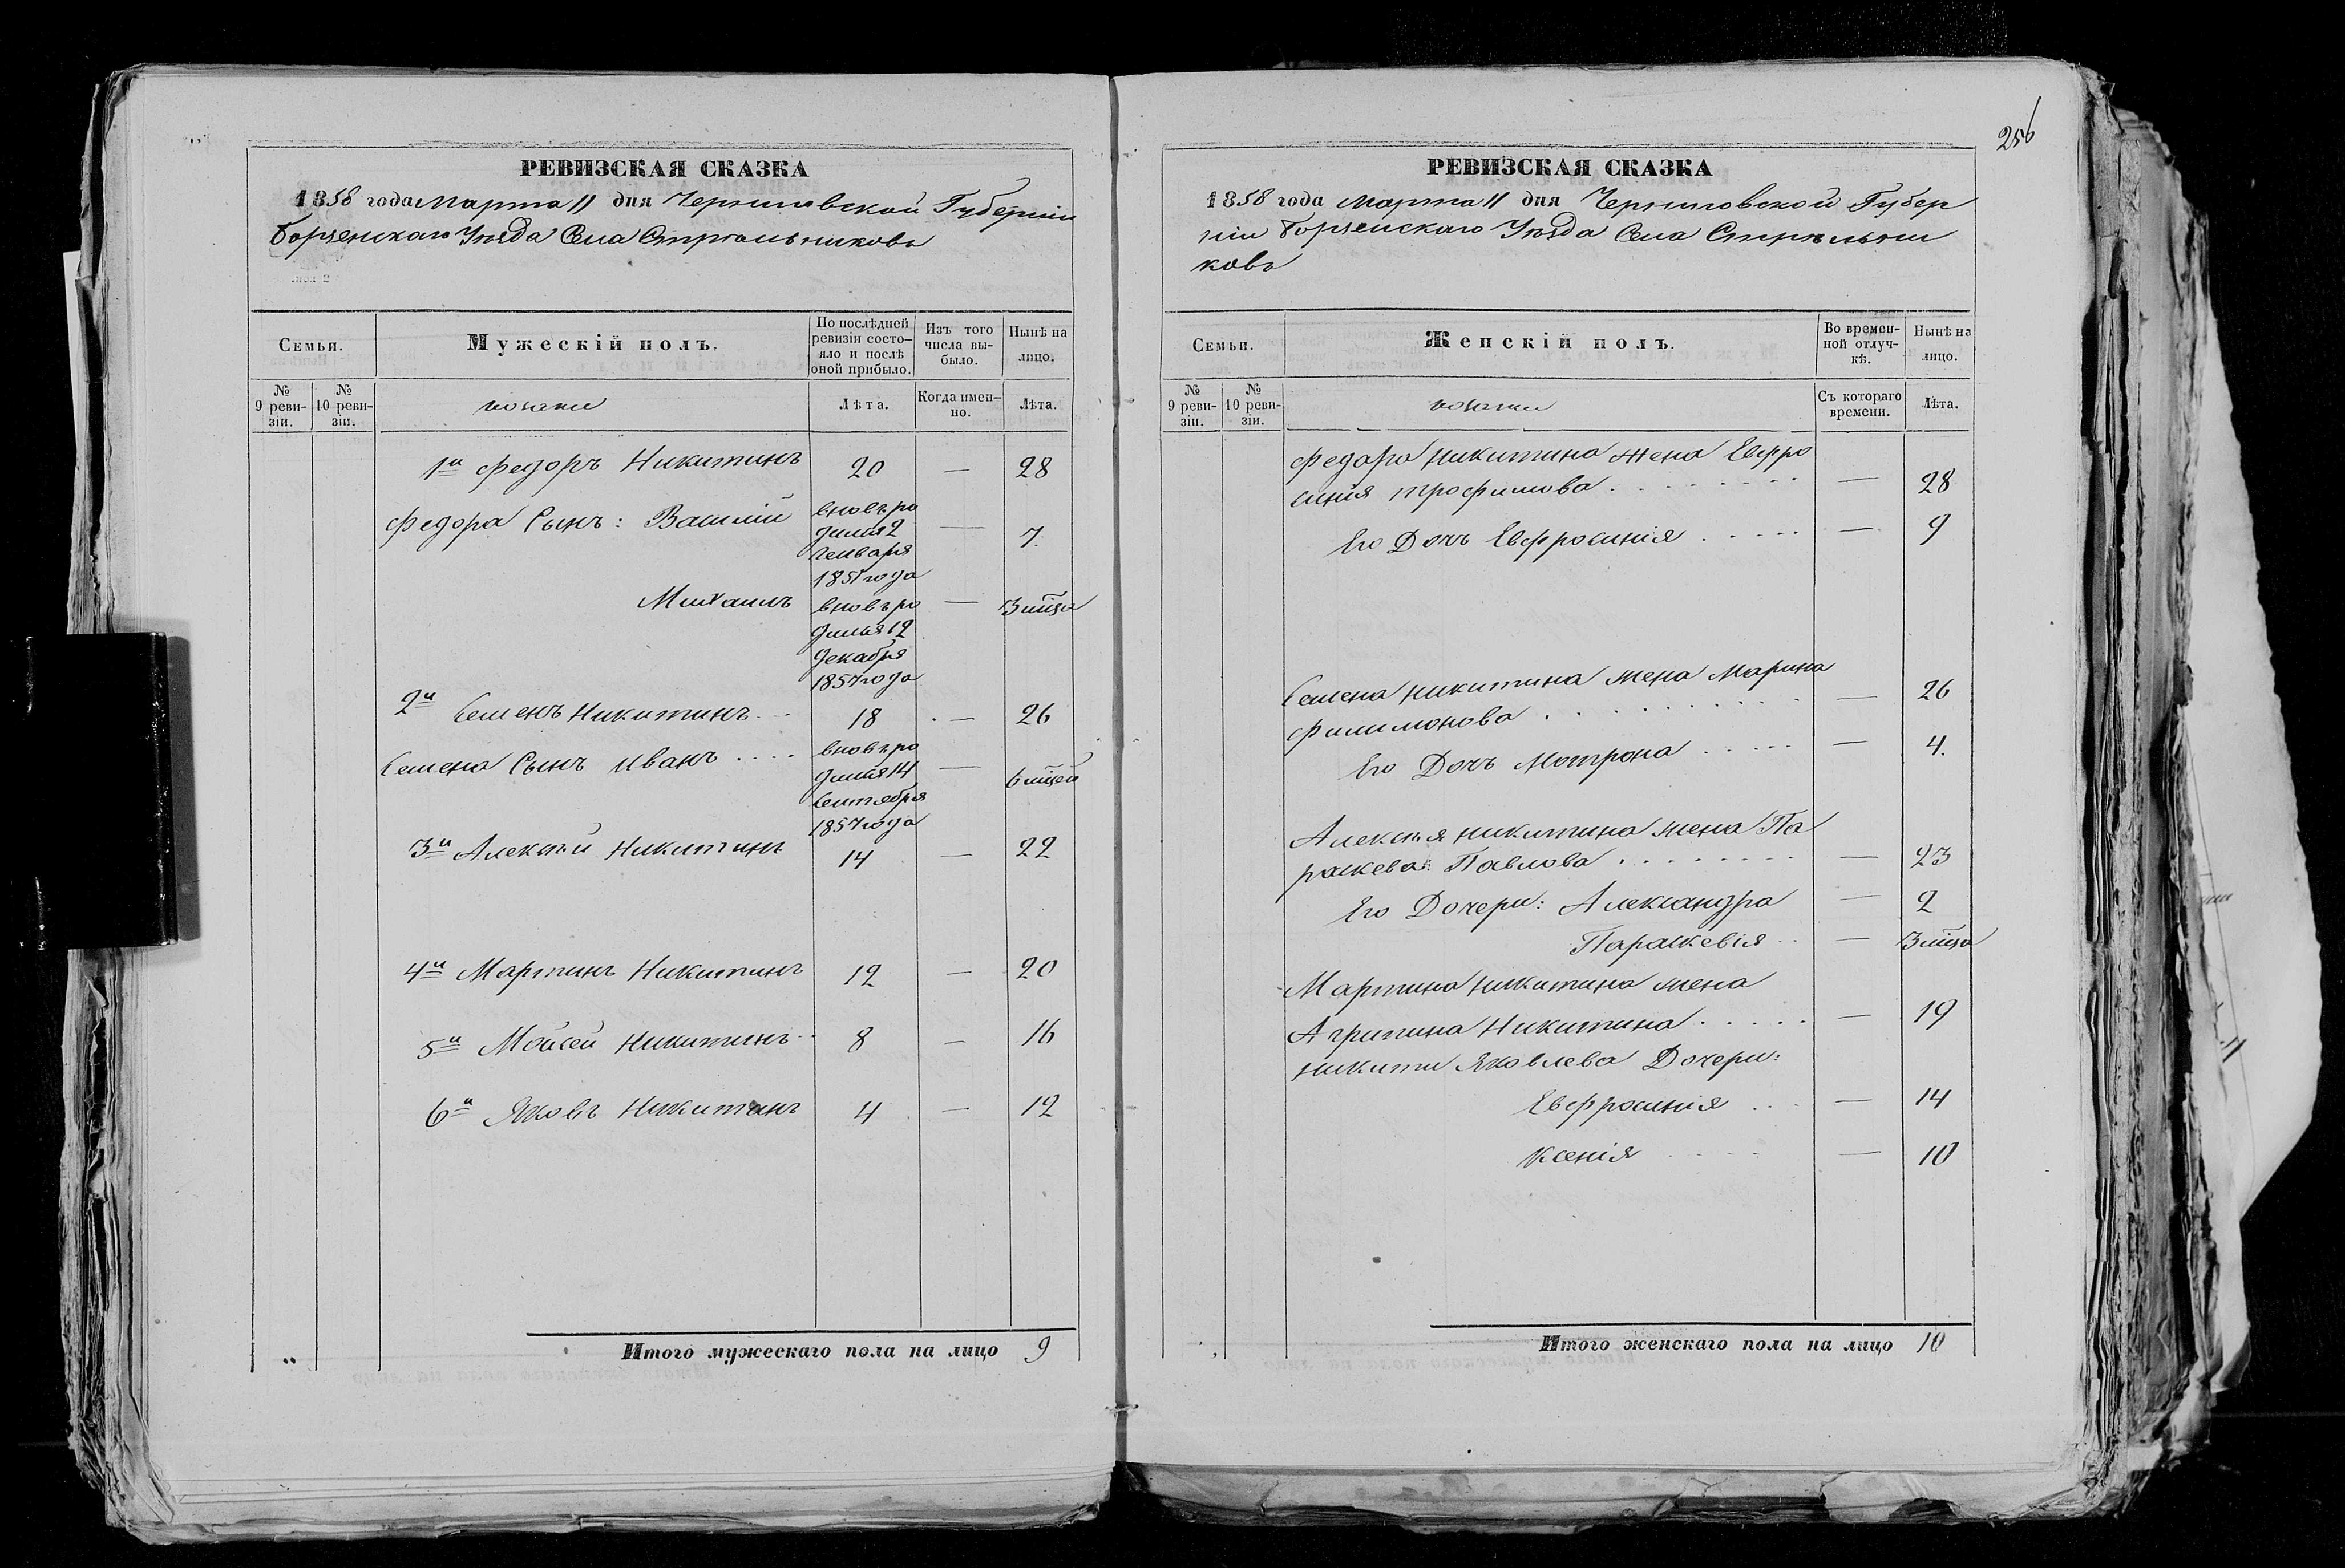 256
РЕВИЗСКАЯ СКАЗКА
1858 года Марта 11 дня Черниговской Губерніи
Борзенскаго Уѣзда Села Стрѣльниковъ
Семьи.
Мужескій полъ.
По послѣдней ревизіи состояло и послѣ оной прибыло.
Изъ того числа выбыло.
Нынѣ на лицо.
№ 9 ревизіи.
№ 10 ревизіи.
козаки
Лѣта.
Когда именно.
Лѣта.
1й Федоръ Никитинъ 20 — 28
Федора Сынъ: Василій вновь ро — 7.
дился 2
Генваря
1851 года
Михаилъ вновь ро — 3 мца
дился 12
Декабря
1857 года
2й Семенъ Никитинъ 18 — 26
Семена Сынъ Иванъ вновь ро — 6 мцей
дился 14
Сентября
1857 года
3й Алексѣй Никитинъ 14 — 22
4й Мартинъ Никитинъ 12 — 20
5й Мойсей Никитинъ 8 — 16
6й Яковъ Никитинъ 4 — 12
Итого мужескаго пола на лицо 9
РЕВИЗСКАЯ СКАЗКА
1858 года Марта 11 дня Черниговской Губер
ніи Борзенскаго Уѣзда Села Стрѣльни
ковъ
Семьи.
Женскій полъ.
Во временной отлучкѣ.
Нынѣ на лицо.
№ 9 ревизіи.
№ 10 ревизіи.
козаки
Съ котораго времени.
Лѣта.
Федора Никитина жена Евфро
синія Трофимова — 28
Его Дочь Евфросинія — 9
Семена Никитина жена Марина
Филимонова — 26
Его Дочь Мотрона — 4.
Алексѣя Никитина жена Па
раскева Павлова — 23
Его Дочери: Александра — 2
Параскевія — 3 мца
Мартина Никитина жена
Агрипина Никитина — 19
Никити Яковлева Дочери:
Евфросинія — 14
Ксенія — 10
Итого женскаго пола на лицо 10